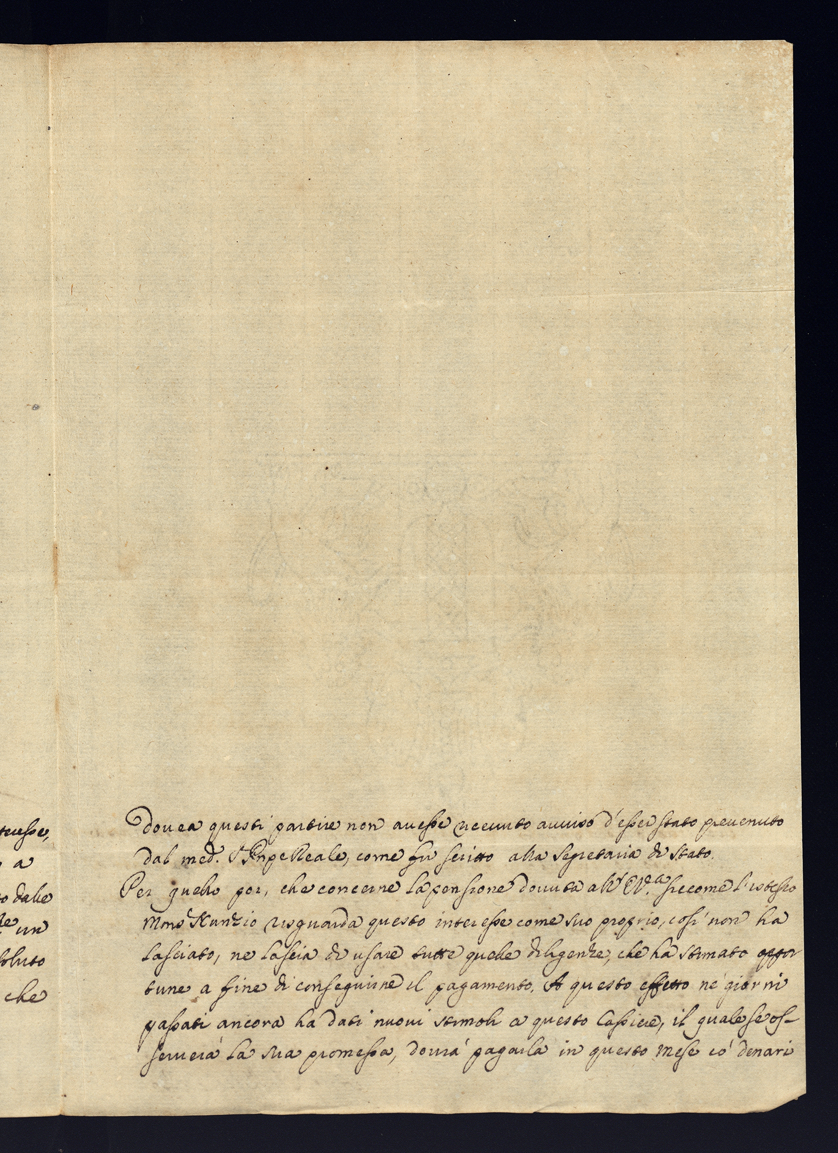 teresse,
a
o dalle
un
soluto
che
dovea questi partire non avesse receuuto auuiso d'esser stato preuenuto
dal med. Pnpe Reale, come fu scritto alla Segretaria di Stato.
Per quello poi, che concerne la pensione douuta all' Em.a siccome l'istesso
Mons.r Nunzio risguarda questo interesse come suo proprio, così non ha
lasciato, ne lascia di usare tutte quelle diligenze, che ha stimato oppor
tune a fine di conseguirne il pagamento. A questo effetto né giorni
passati ancora ha dati nuoui stimoli a questo Cassiere, il quale se os-
seruerà la sua promessa, dourà pagarla in questo mese co' denari